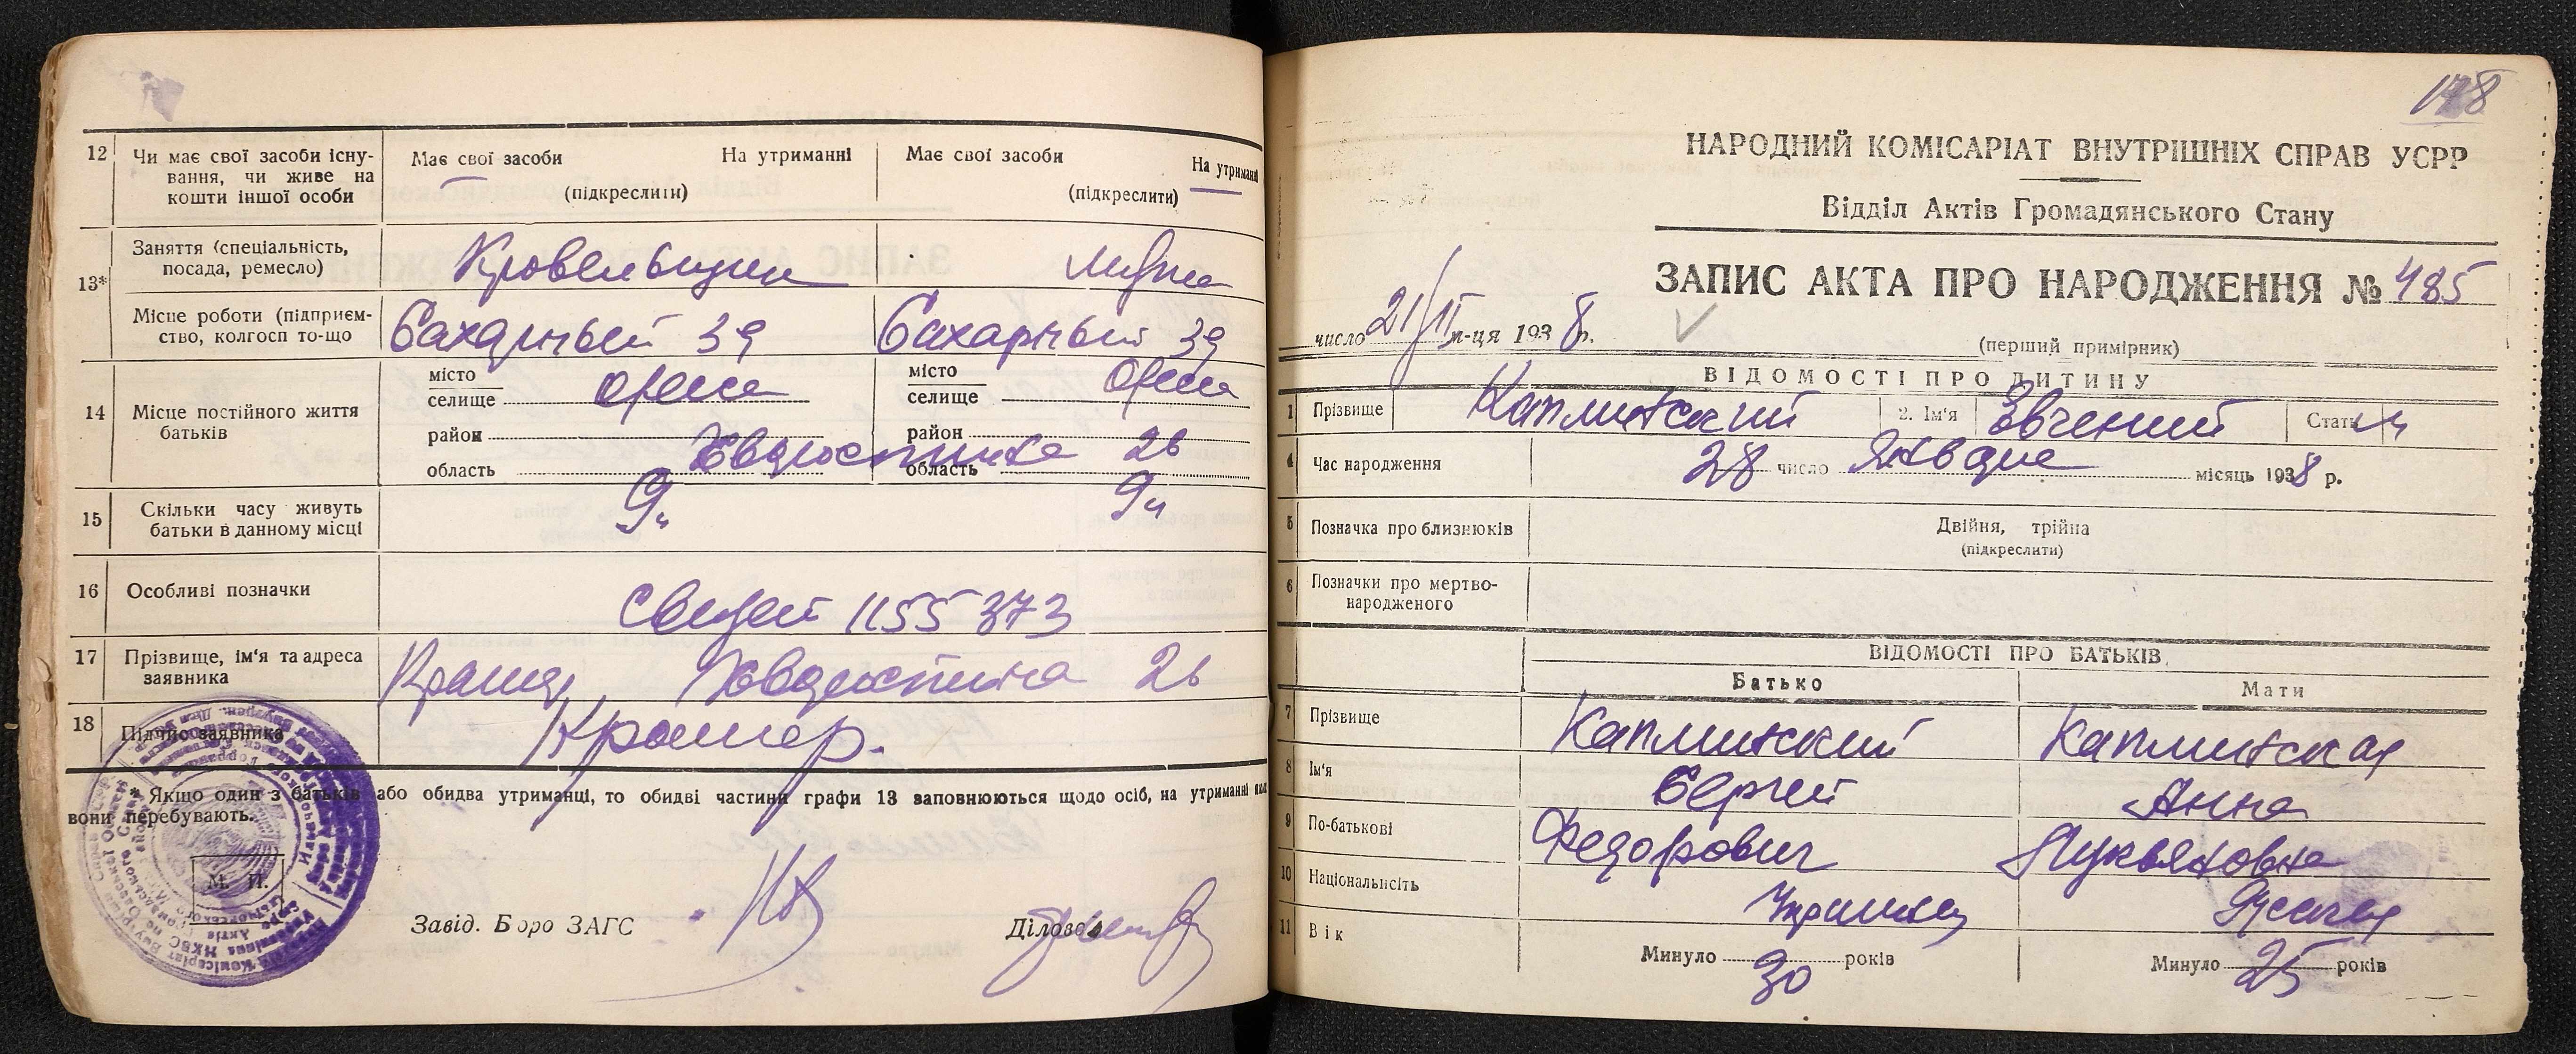 12
Чи має свої засоби існу-
вання, чи живе на
кошти іншої особи
Має свої засоби
На утриманні
(підкреслити)
Має свої засоби
На утриманні
(підкреслити)
13*
Заняття (спеціальність,
посада, ремесло)
Кровельщик
Місце роботи (підприєм-
ство, колгосп то-що
Сахарный 39
Сахарный 39
14
Місце постійного життя
батьків
місто
селище
Одесса
район
область
місто
селище
Одесса
район
область
26
15
Скільки часу живуть
батьки в данному місці
16
Особливі позначки
1155373
17
Прізвище, ім'я та адреса
заявника
26
18
Підпис заявника
* Якщо один з батьків або обидва утриманці, то обидві частини графи 13 заповнюються щодо осіб, на утриманні
вони перебувають.
М. П.
Завід. Бюро ЗАГС
Діловод
178
НАРОДНИЙ КОМІСАРІАТ ВНУТРІШНІХ СПРАВ УСРР
Відділ Актів Громадянського Стану
ЗАПИС АКТА ПРО НАРОДЖЕННЯ № 485
число 21/II м-ця 1938 р.
(перший примірник)
ВІДОМОСТІ ПРО ДИТИНУ
1 Прізвище Каплинский 2. Ім'я Евгений Стать м
4 Час народження 28 число Января місяць 1938 р.
5 Позначка про близнюків
Двійня, трійна
(підкреслити)
6 Позначки про мертво-
народженого
ВІДОМОСТІ ПРО БАТЬКІВ
Батько
Мати
7 Прізвище Каплинский Каплинская
8 Ім'я Сергей Анна
9 По-батькові Федорович Лукьяновна
10 Національність Украинец Русская
11 Вік
Минуло 30 років
Минуло 25 років